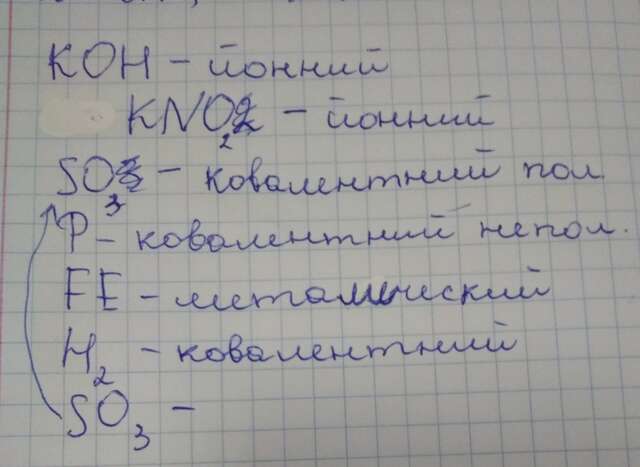 KOH - йонний
KNO2 - йонний
SO3 - ковалентний пол.
P - ковалентний непол.
FE - металический
H2 - ковалентний
SO3 -